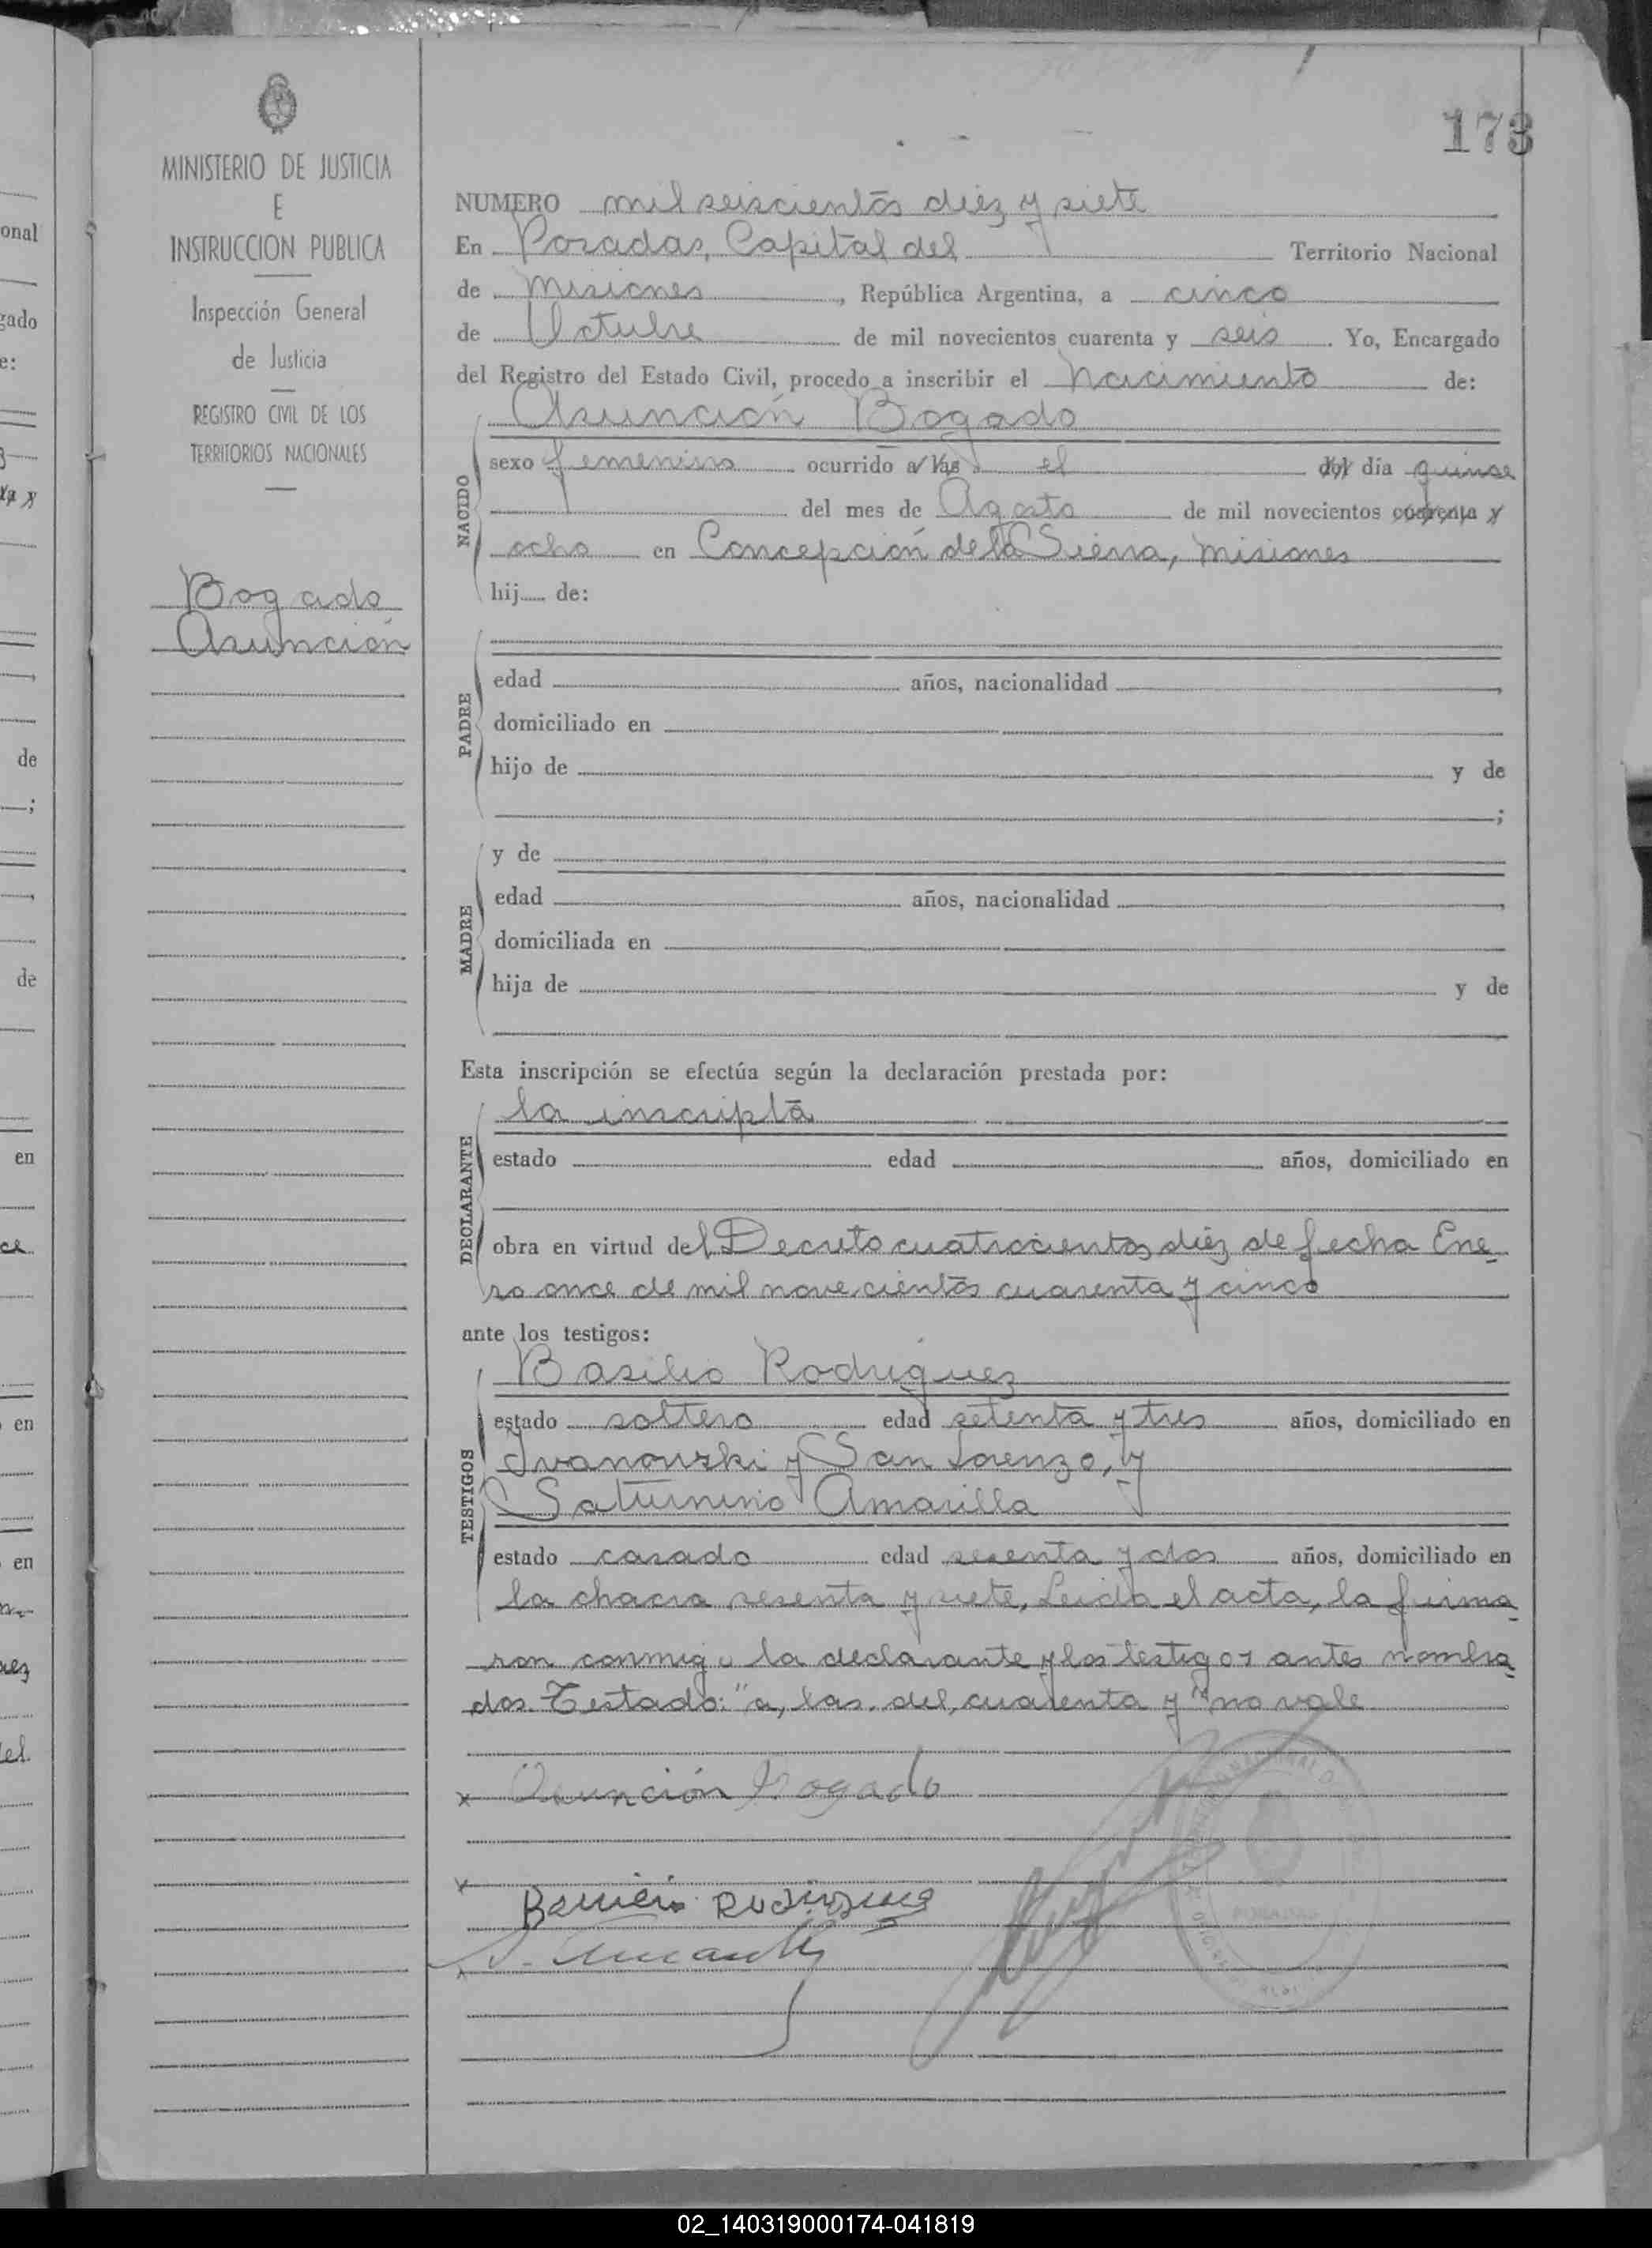 173
MINISTERIO DE JUSTICIA
E
INSTRUCCION PUBLICA
Inspección General
de Justicia
REGISTRO CIVIL DE LOS
TERRITORIOS NACIONALES
Bogado
Asunción
NUMERO mil seiscientos diez y siete
En Posadas, Capital del Territorio Nacional
de Misiones, República Argentina, a cinco
de Octubre de mil novecientos cuarenta y seis. Yo, Encargado
del Registro del Estado Civil, procedo a inscribir el Nacimiento de:
Asunción Bogado
NACIDO
sexo femenino ocurrido a las el del día quinse
del mes de Agosto de mil novecientos cuarenta y
ocho en Concepción de la Sierra, Misiones
hij de:
PADRE
edad años, nacionalidad
domiciliado en
hijo de y de
;
MADRE
y de
edad años, nacionalidad
domiciliada en
hija de y de
Esta inscripción se efectúa según la declaración prestada por:
DECLARANTE
la inscripta
estado edad años, domiciliado en
obra en virtud del Decreto cuatrocientos diez de fecha Ene-
ro once de mil novecientos cuarenta y cinco
ante los testigos:
TESTIGOS
Basilio Rodriguez
estado soltero edad setenta y tres años, domiciliado en
Ivanouski y San Lorenzo, y
Saturnino Amarilla
estado casado edad sesenta y dos años, domiciliado en
la chacra sesenta y siete, Leida el acta, la firma-
ron conmigo la declarante y los testigos antes nombra-
dos. Testado: "a, las, del, cuarenta y" no vale
x Asunción Bogado
x
Rodriguez
POSADAS
02_140319000174-041819